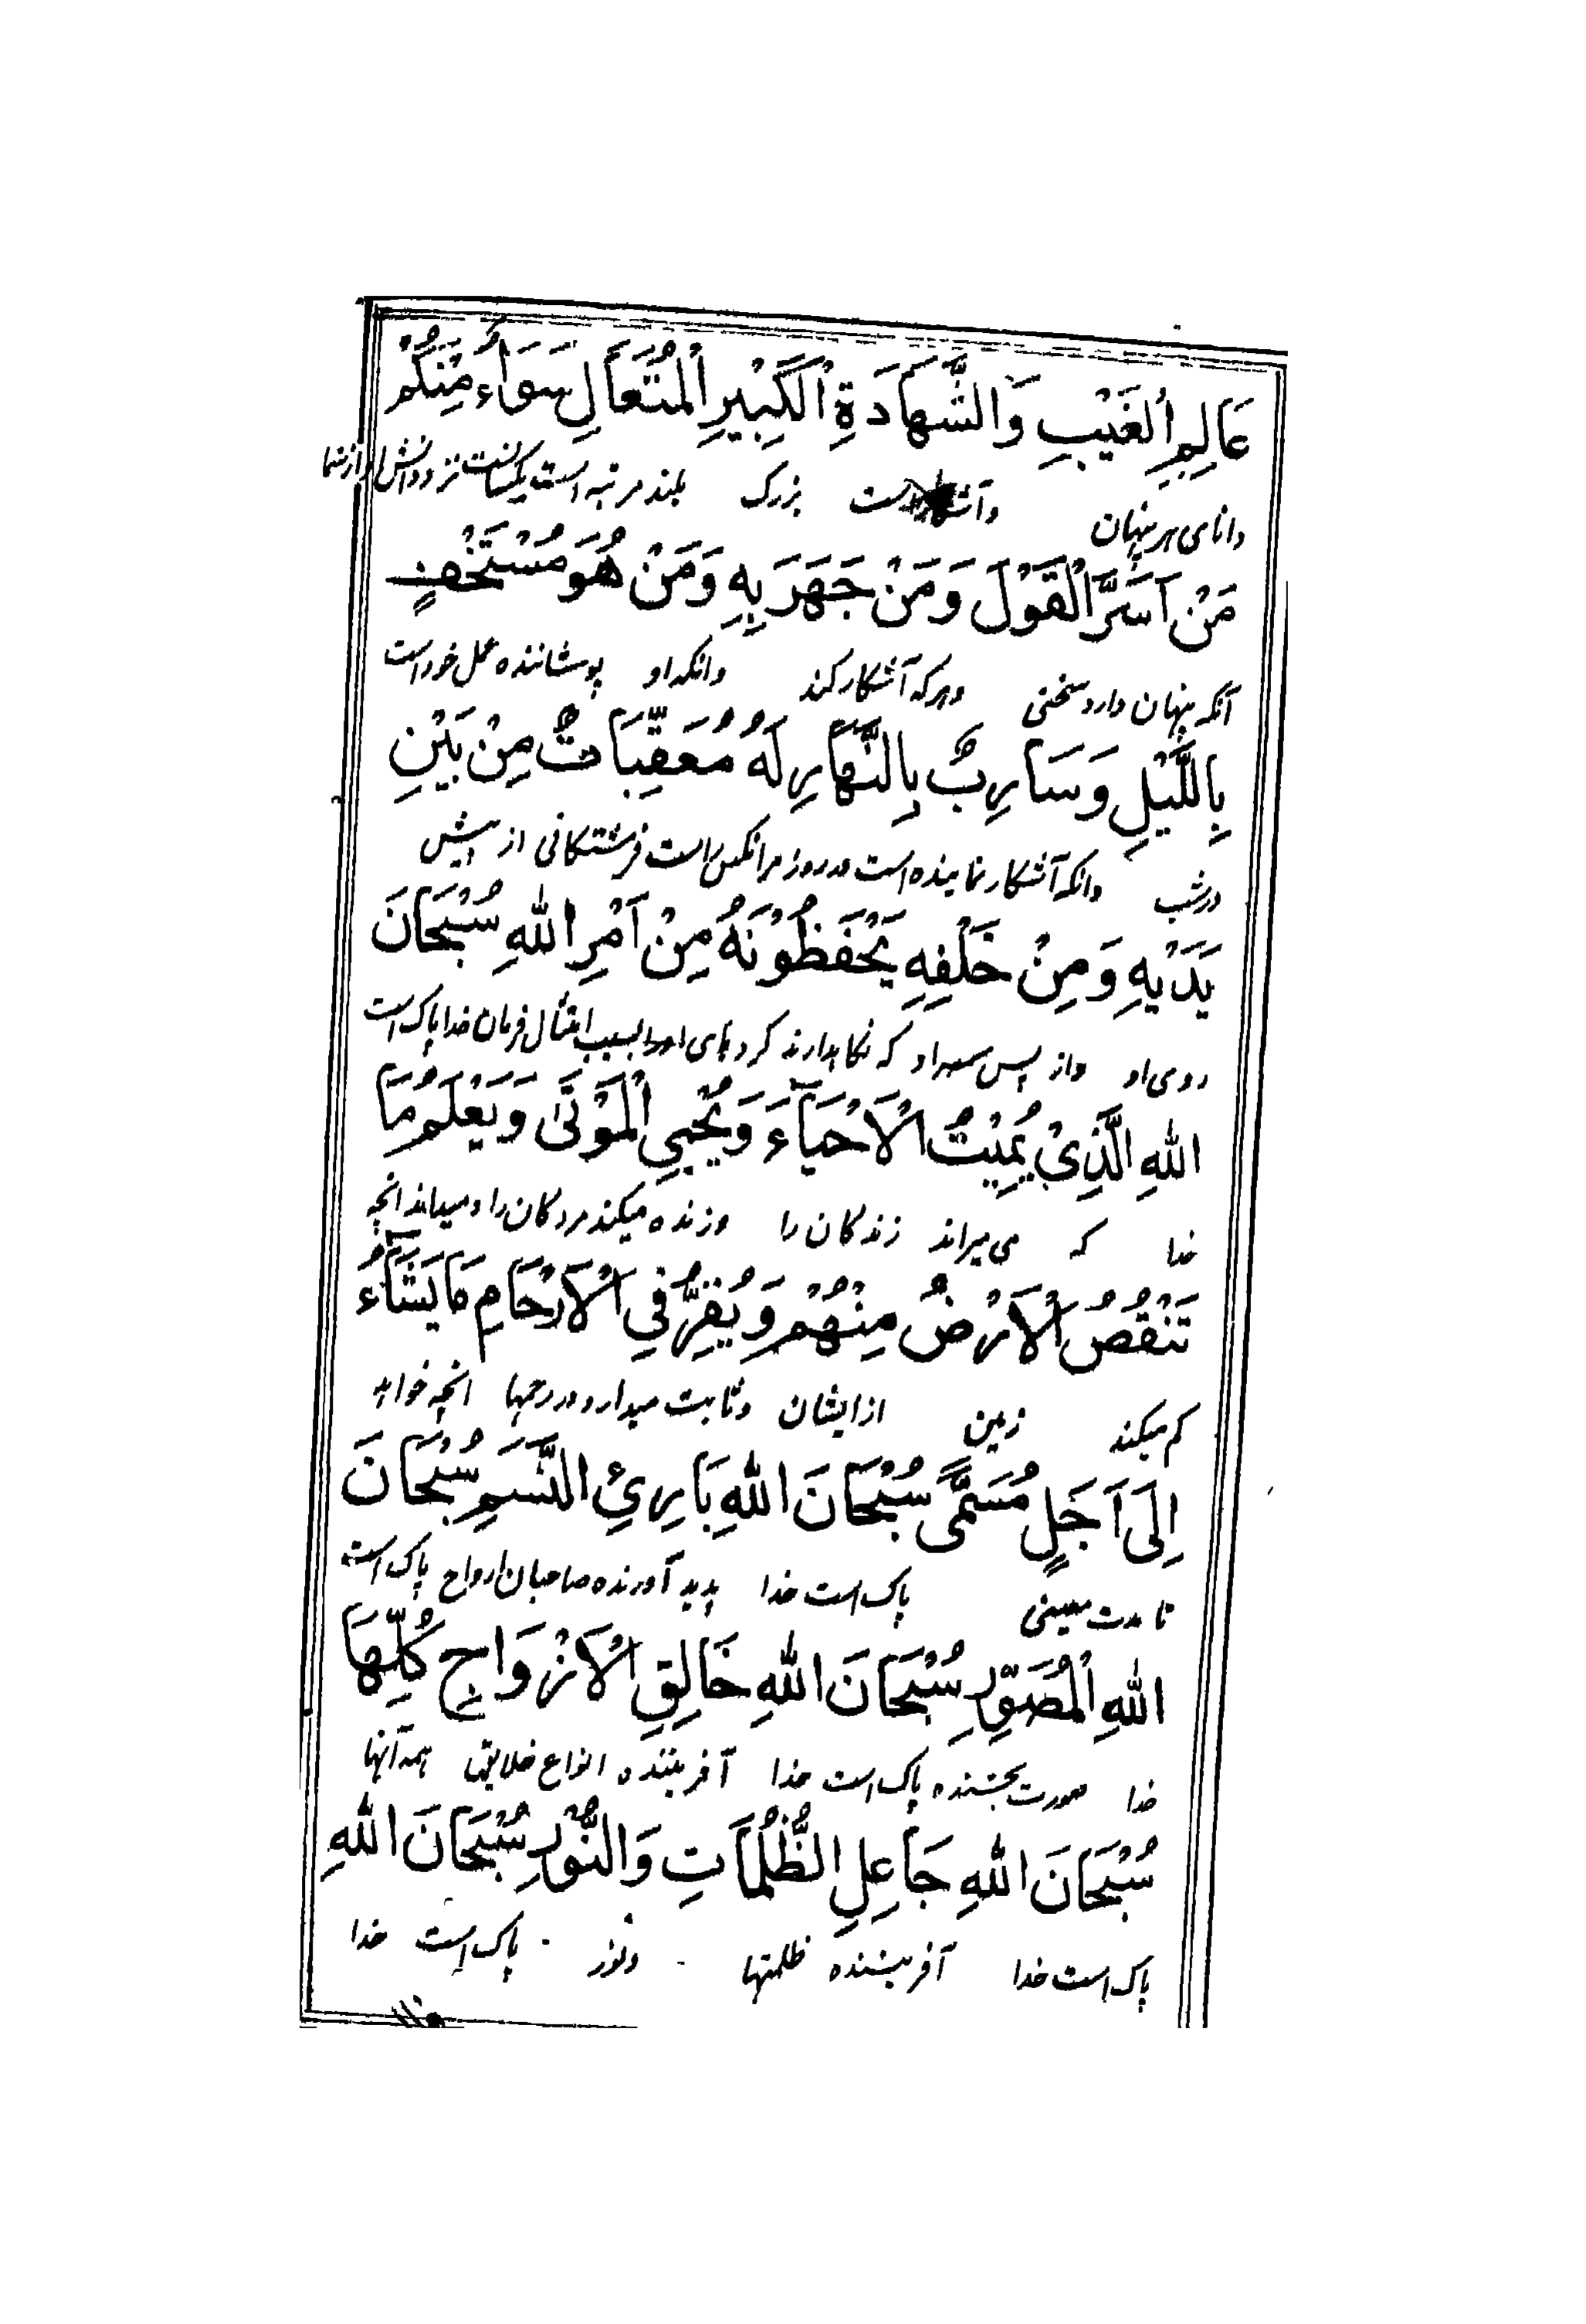 عَالِمِ الْغَيْبِ وَالشَّهَادَةِ الْكَبِيْرِ الْمُتَعَالِ سَوَاءٌ مِنْكُمْ
دانای هر پنهان وآشکاراست بزرک بلند مرتبه است یکسانست نزد دانش او از شما
مَنْ اَسَرَّ الْقَوْلَ وَمَنْ جَهَرَ بِهِ وَمَنْ هُوَ مُسْتَخْفٍ
آنکه پنهان دارد سخنی وهرکه آشکار کند وانکه او پوشاننده عمل خود است
بِاللَّيْلِ وَسَارِبٌ بِالنَّهَارِ لَهُ مُعَقِّبَاتٌ مِنْ بَيْنِ
درشب وانکه آشکار نماینده است در روز مرانکس راست فرشتکانی از پیش
يَدَيْهِ وَمِنْ خَلْفِهِ يَحْفَظُوْنَهُ مِنْ اَمْرِ اللهِ سُبْحَانَ
روی او واز پس سر او که نکاهدارند کردهای اورا بسبب امتثال فرمان خدا پاک است
اللهِ الَّذِيْ يُمِيْتُ الْاَحْيَآءَ وَيُحْيِي الْمَوْتَى وَيَعْلَمُ مَا
خدا که می میراند زندکان را وزنده میکند مردکان را ومیداند انچه
تَنْقُصُ الْاَرْضُ مِنْهُمْ وَيُقِرُّ فِي الْاَرْحَامِ مَا يَشَآءُ
کم میکند زمین از ایشان وثابت میدارد در رحمها انچه خواهد
اِلَى اَجَلٍ مُسَمًّى سُبْحَانَ اللهِ بَارِئِ النَّسَمِ سُبْحَانَ
تا مدت معینی پاک است خدا پدید آورنده صاحبان ارواح پاک است
اللهِ الْمُصَوِّرِ سُبْحَانَ اللهِ خَالِقِ الْاَزْوَاجِ كُلِّهَا
خدا صورت بخشنده پاک است خدا آفریننده انواع خلایق همه آنها
سُبْحَانَ اللهِ جَاعِلِ الظُّلُمَاتِ وَالنُّوْرِ سُبْحَانَ اللهِ
پاک است خدا آفریننده ظلمتها ونور پاک است خدا